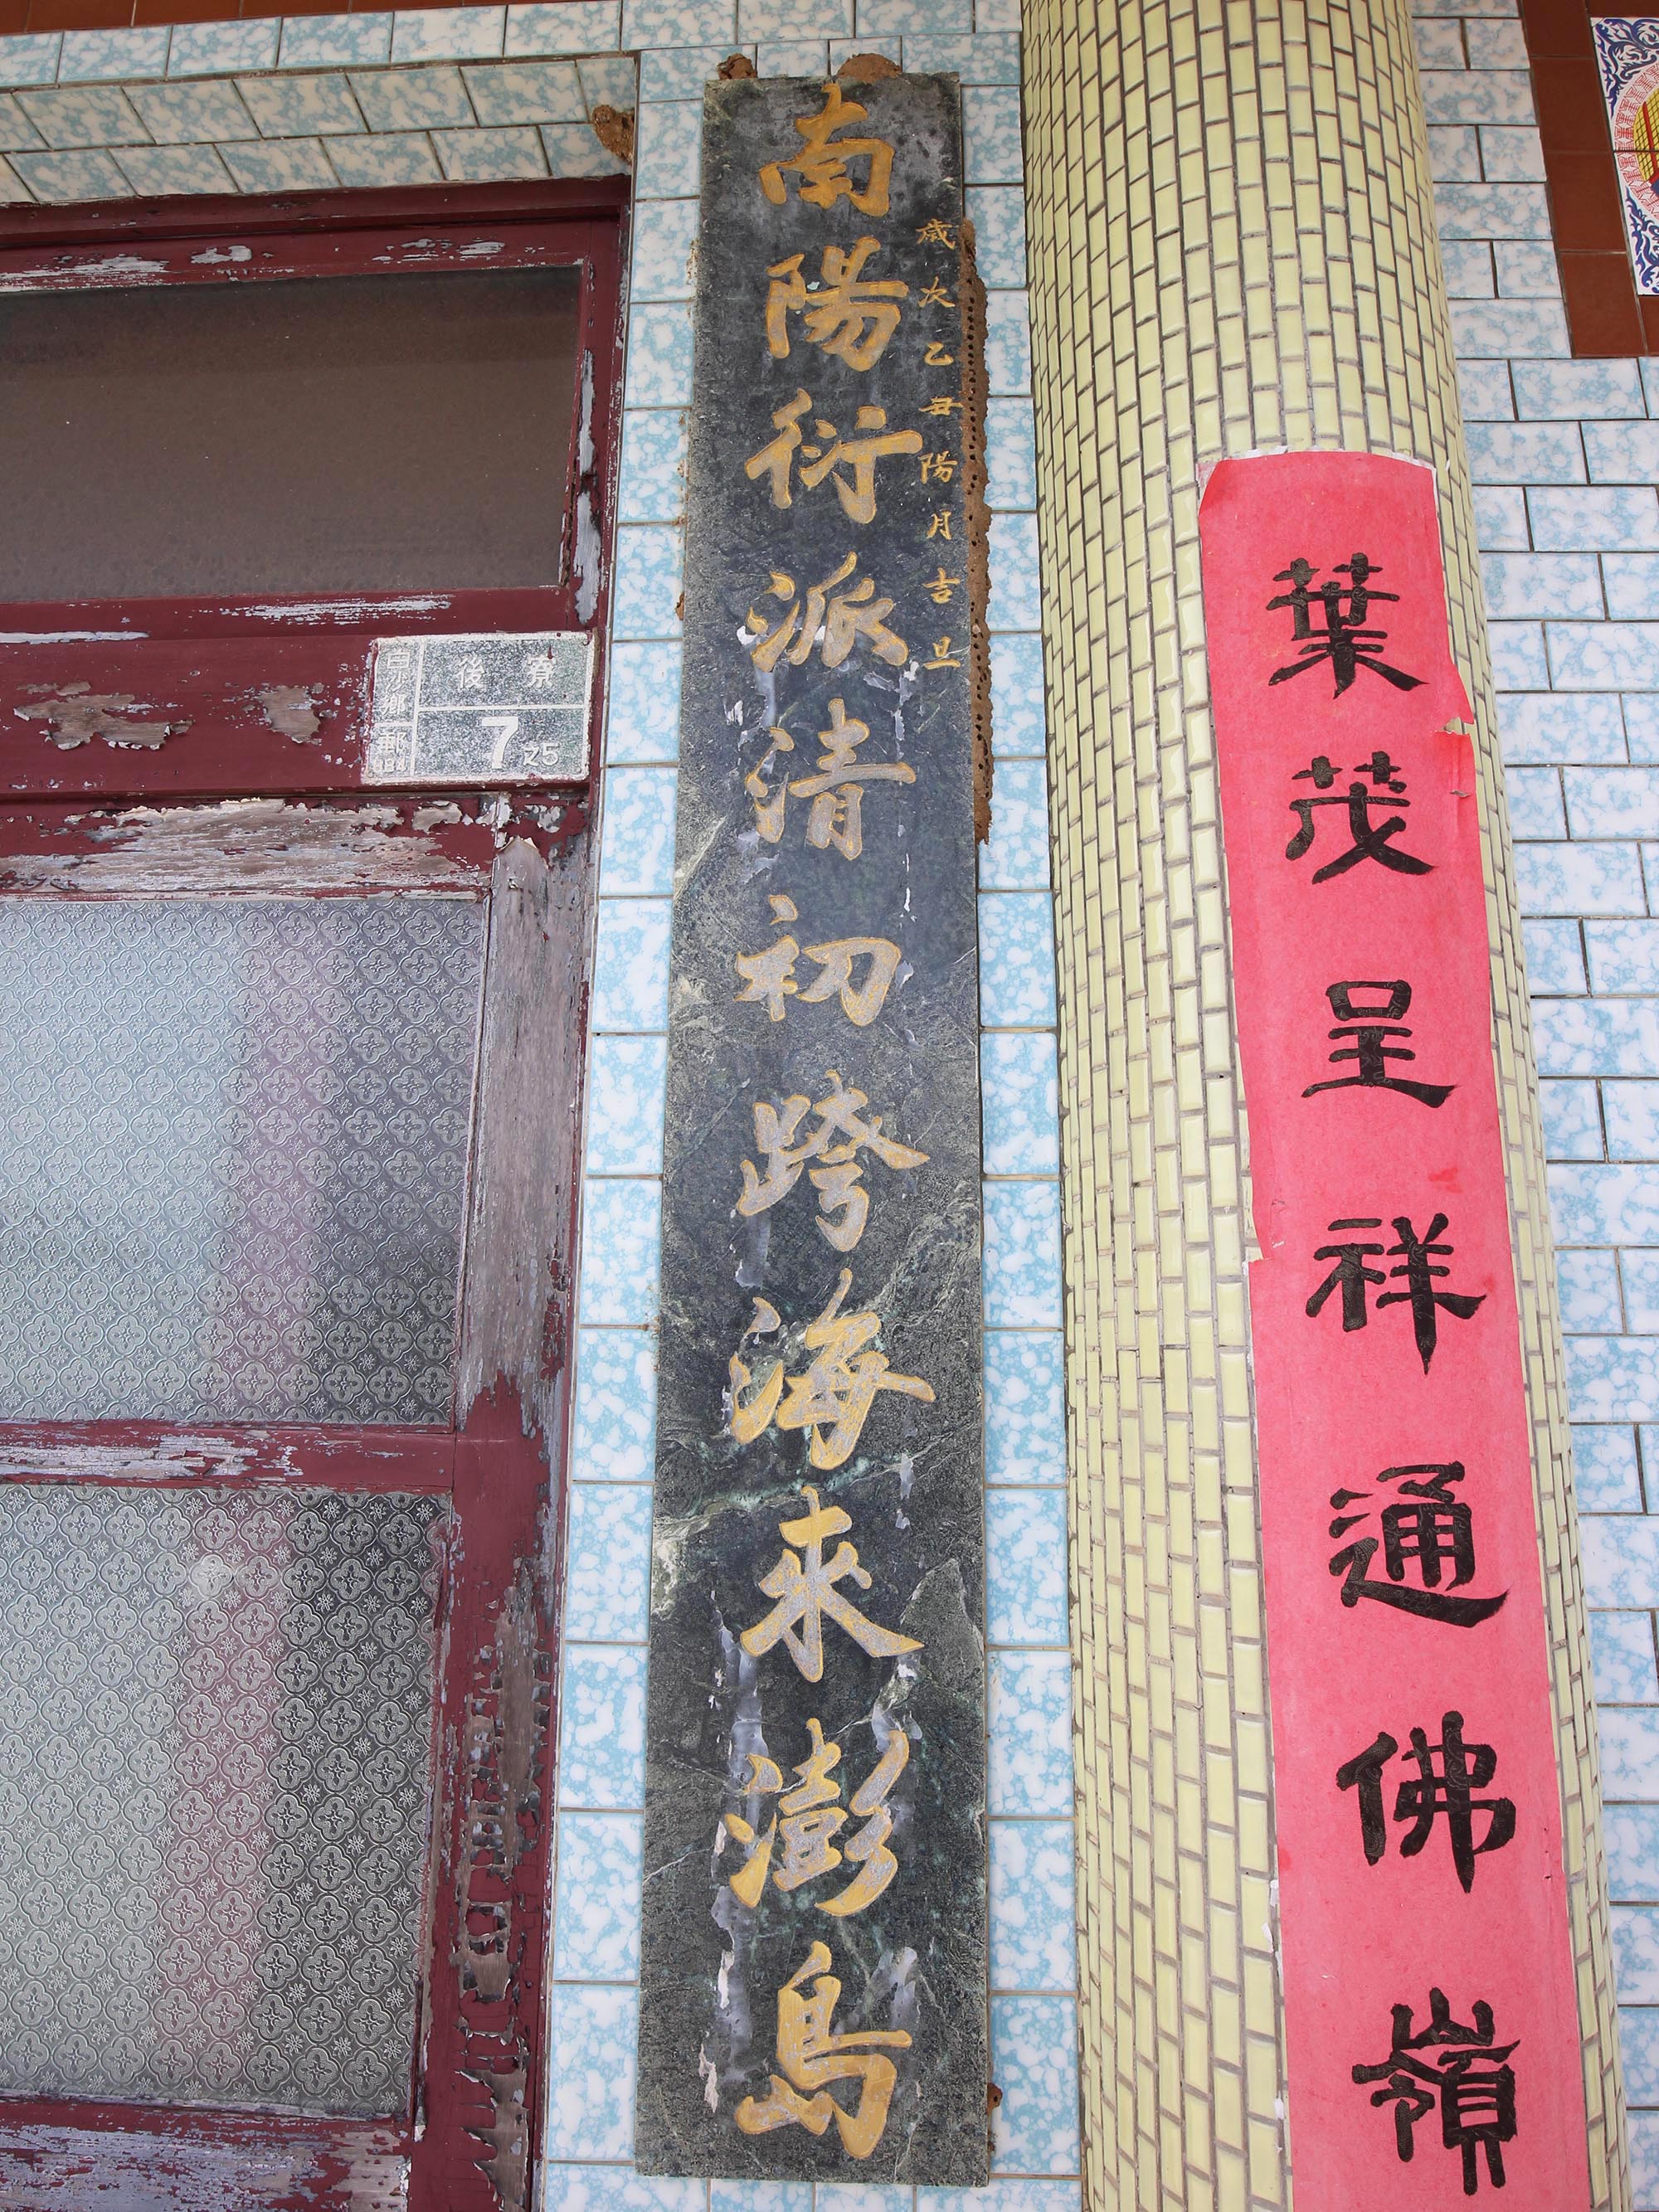 葉茂呈祥通佛嶺
歲次乙丑陽月吉旦
南陽衍派清初跨海來澎島
後寮
7